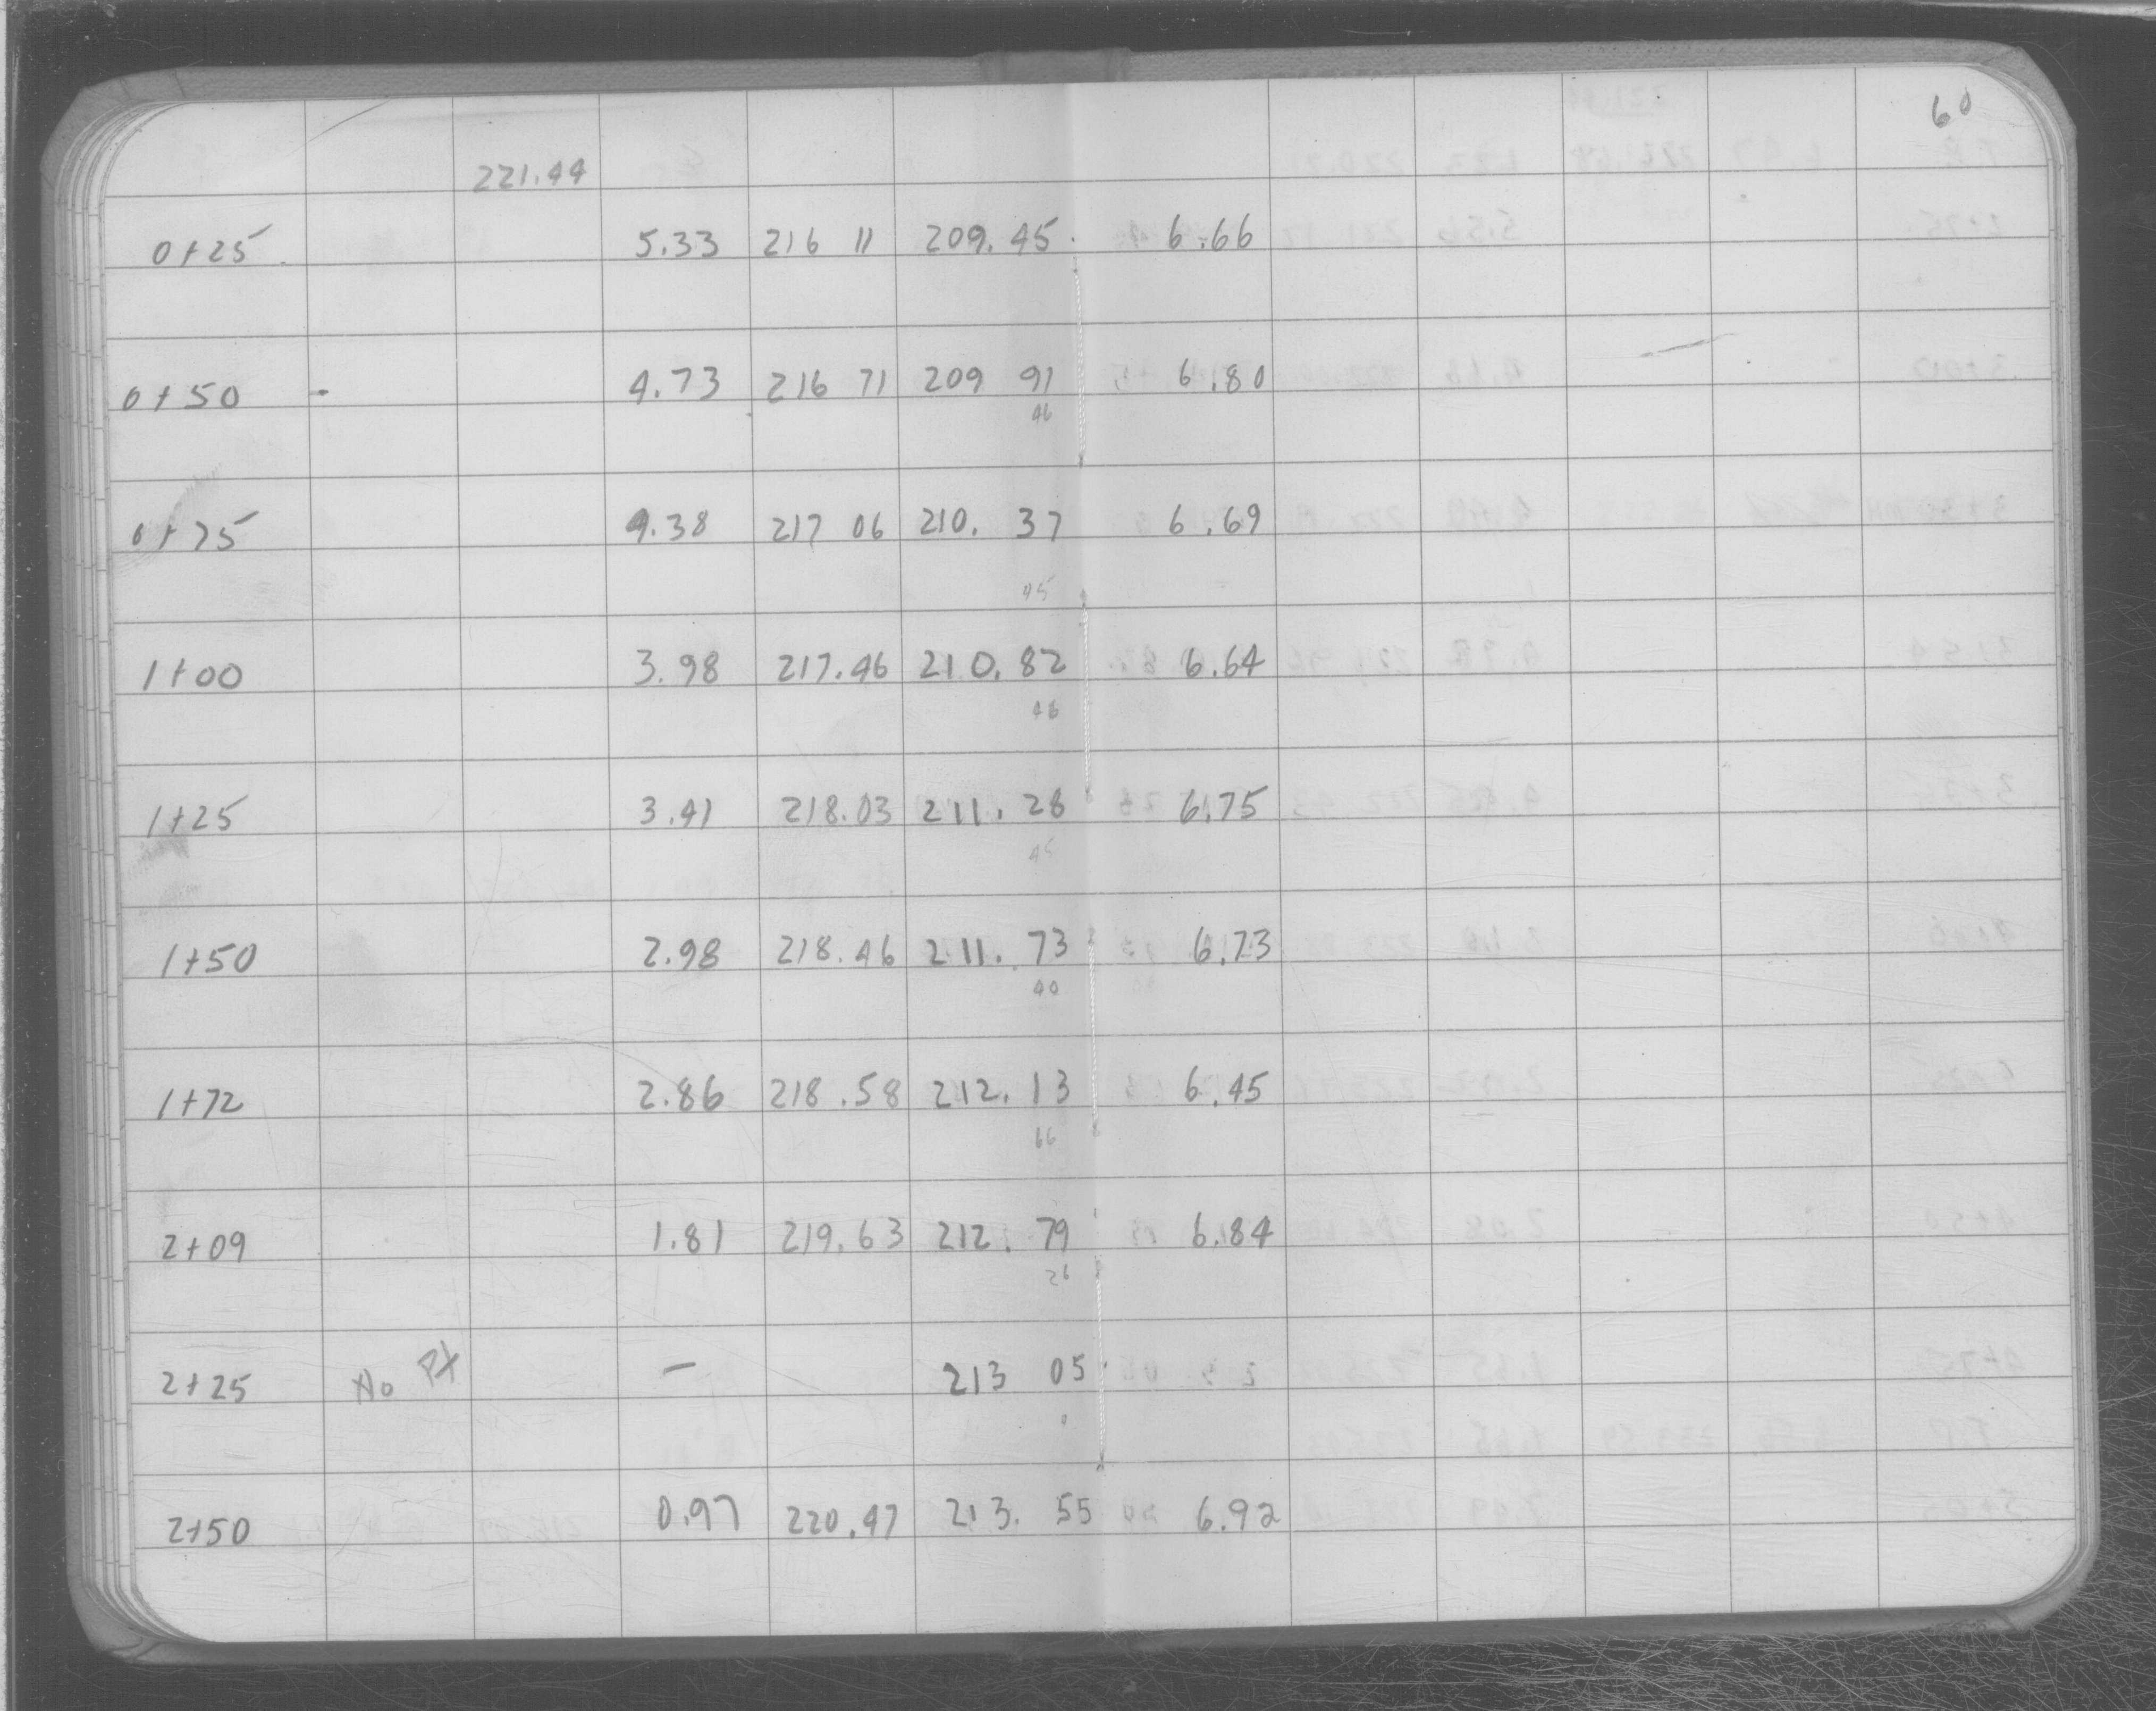 60
221.44
0+25 5.33 216 11 209.45 6.66
0+50 - 4.73 216 71 209 91 6.80
46
0+75 4.38 217 06 210. 37 6.69
45
1+00 3.98 217.46 210.82 6.64
46
1+25 3.41 218.03 211.28 6.75
45
1+50 2.98 218.46 211.73 6.73
40
1+72 2.86 218.58 212.13 6.45
66
2+09 1.81 219.63 212.79 6.84
26
2+25 No Pt - 213 05
2+50 0.97 220.47 213.55 6.92